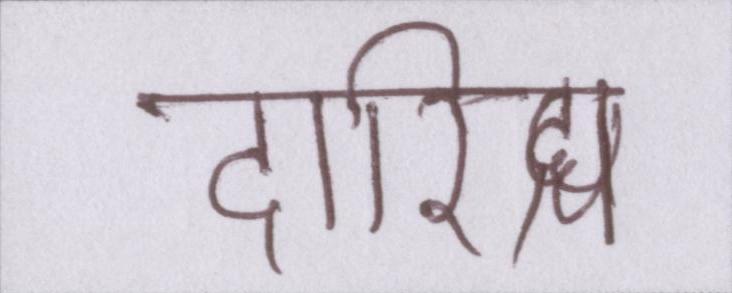 दारिद्र्य